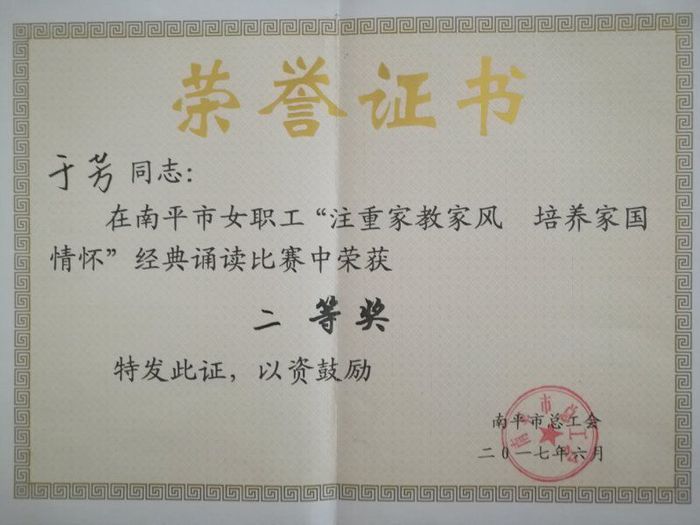 荣誉证书
于芳同志：
在南平市女职工“注重家教家风　培养家国
情怀”经典诵读比赛中荣获
二等奖
特发此证，以资鼓励
南平市总工会
二〇一七年六月
南平市总工会